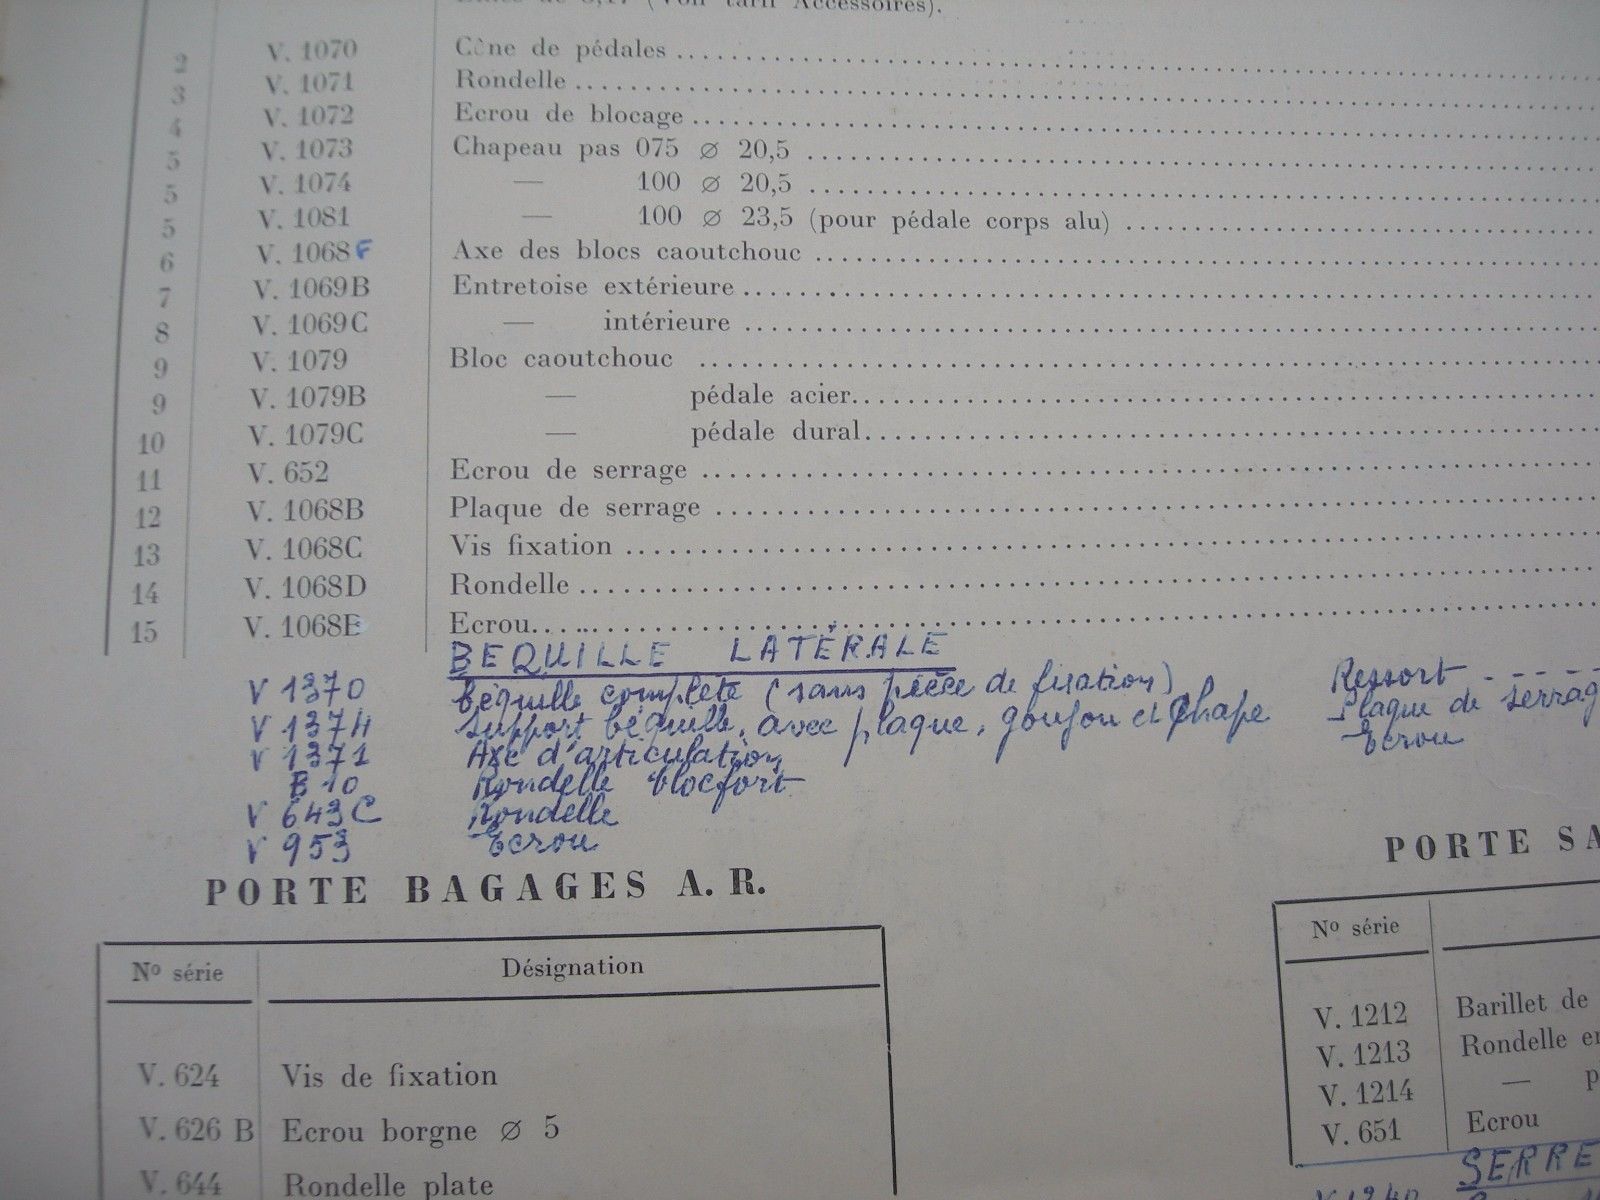 Accessoires).
2 V. 1070 Cône de pédales
3 V. 1071 Rondelle
4 V. 1072 Ecrou de blocage
5 V. 1073 Chapeau pas 075 ⌀ 20,5
5 V. 1074 — 100 ⌀ 20,5
5 V. 1081 — 100 ⌀ 23,5 (pour pédale corps alu)
6 V. 1068F Axe des blocs caoutchouc
7 V. 1069B Entretoise extérieure
8 V. 1069C — intérieure
9 V. 1079 Bloc caoutchouc
9 V. 1079B — pédale acier
10 V. 1079C — pédale dural
11 V. 652 Ecrou de serrage
12 V. 1068B Plaque de serrage
13 V. 1068C Vis fixation
14 V. 1068D Rondelle
15 V. 1068E Ecrou
BEQUILLE LATÉRALE
V 1370 béquille complète (sans pièce de fixation) Ressort
V 1374 Support béquille, avec plaque, goujon et chape Plaque de serrag
V 1371 Axe d'articulation Ecrou
B 10 Rondelle blocfort
V 643C Rondelle
V 953 Ecrou
PORTE BAGAGES A. R.
Nº série Désignation
V. 624 Vis de fixation
V. 626 B Ecrou borgne ⌀ 5
V. 644 Rondelle plate
PORTE SA
Nº série
V. 1212 Barillet de
V. 1213 Rondelle
V. 1214 — p
V. 651 Ecrou
SERRE